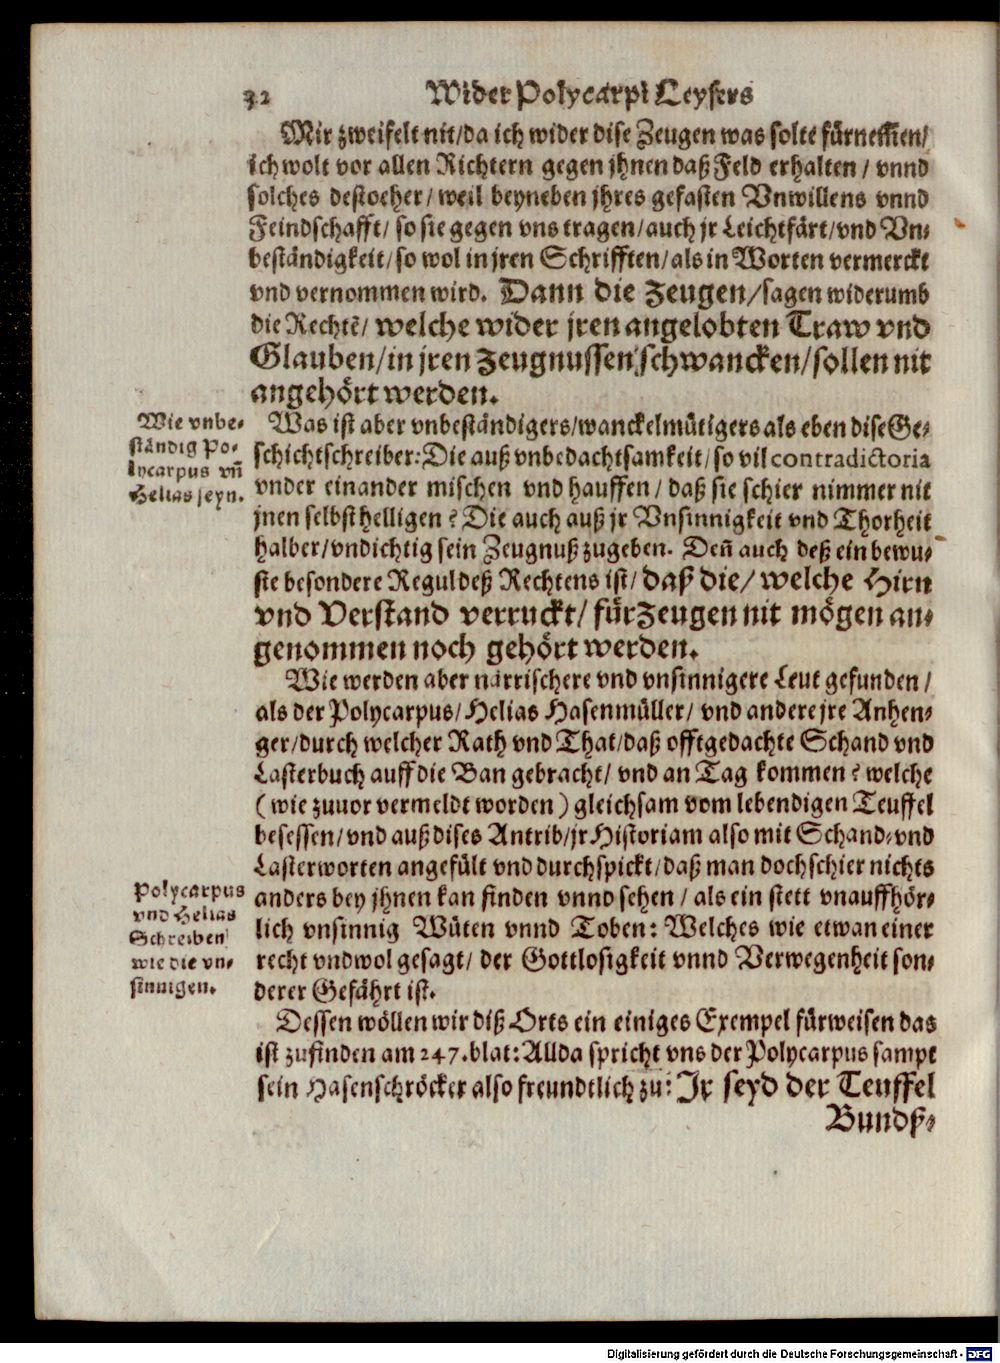 32 Wider Polycarpi Leysers
Mir zweifelt nit/da ich wider dise Zeugen was solte fürnem̃en/
ich wolt vor allen Richtern gegen jhnen daß Feld erhalten / vnnd
solches destoeher/ weil beyneben jhres gefasten Vnwillens vnnd
Feindschafft/ so sie gegen vns tragen/auch jr Leichtfärt/vnd Vn⸗
beständigkeit/so wol in jren Schrifften/als in Worten vermerckt
vnd vernommen wird. Dann die Zeugen/sagen widerumb
die Rechtẽ/ welche wider jren angelobten Traw vnd
Glauben/in jren Zeugnussen schwancken/sollen nit
angehört werden.
Wie vnbe⸗
ständig Po⸗
lycarpus vñ
Helias seyn.
Was ist aber vnbeständigers/wanckelmütigers als eben dise Ge⸗
schichtschreiber: Die auß vnbedachtsamkeit/so vil contradictoria
vnder einander mischen vnd hauffen/ daß sie schier nimmer nit
jnen selbst helligen? Die auch auß jr Vnsinnigkeit vnd Thorheit
halber/vndichtig sein Zeugnuß zugeben. Deñ auch deß ein bewu⸗
ste besondere Regul deß Rechtens ist/ daß die/ welche Hirn
vnd Verstand verruckt/ für Zeugen nit mögen an⸗
genommen noch gehört werden.
Wie werden aber närrischere vnd vnsinnigere Leut gefunden/
als der Polycarpus/Helias Hasenmüller/ vnd andere jre Anhen⸗
ger/durch welcher Rath vnd That/daß offtgedachte Schand vnd
Lasterbuch auff die Ban gebracht/ vnd an Tag kommen? welche
(wie zuuor vermeldt worden) gleichsam vom lebendigen Teuffel
besessen/vnd auß dises Antrib/jr Historiam also mit Schand⸗vnd
Lasterworten angefült vnd durchspickt/daß man doch schier nichts
Polycarpus
vnd Helias
Schreiben
wie die vn⸗
sinnigen.
anders bey jhnen kan finden vnnd sehen / als ein stett vnauffhör⸗
lich vnsinnig Wüten vnnd Toben: Welches wie etwan einer
recht vnd wol gesagt/ der Gottlosigkeit vnnd Verwegenheit son⸗
derer Gefährt ist.
Dessen wöllen wir diß Orts ein einiges Exempel fürweisen das
ist zufinden am 247.blat: Allda spricht vns der Polycarpus sampt
sein Hasenschröcker also freundtlich zu: Jr seyd der Teuffel
Bundß⸗
Digitalisierung gefördert durch die Deutsche Forschungsgemeinschaft - DFG